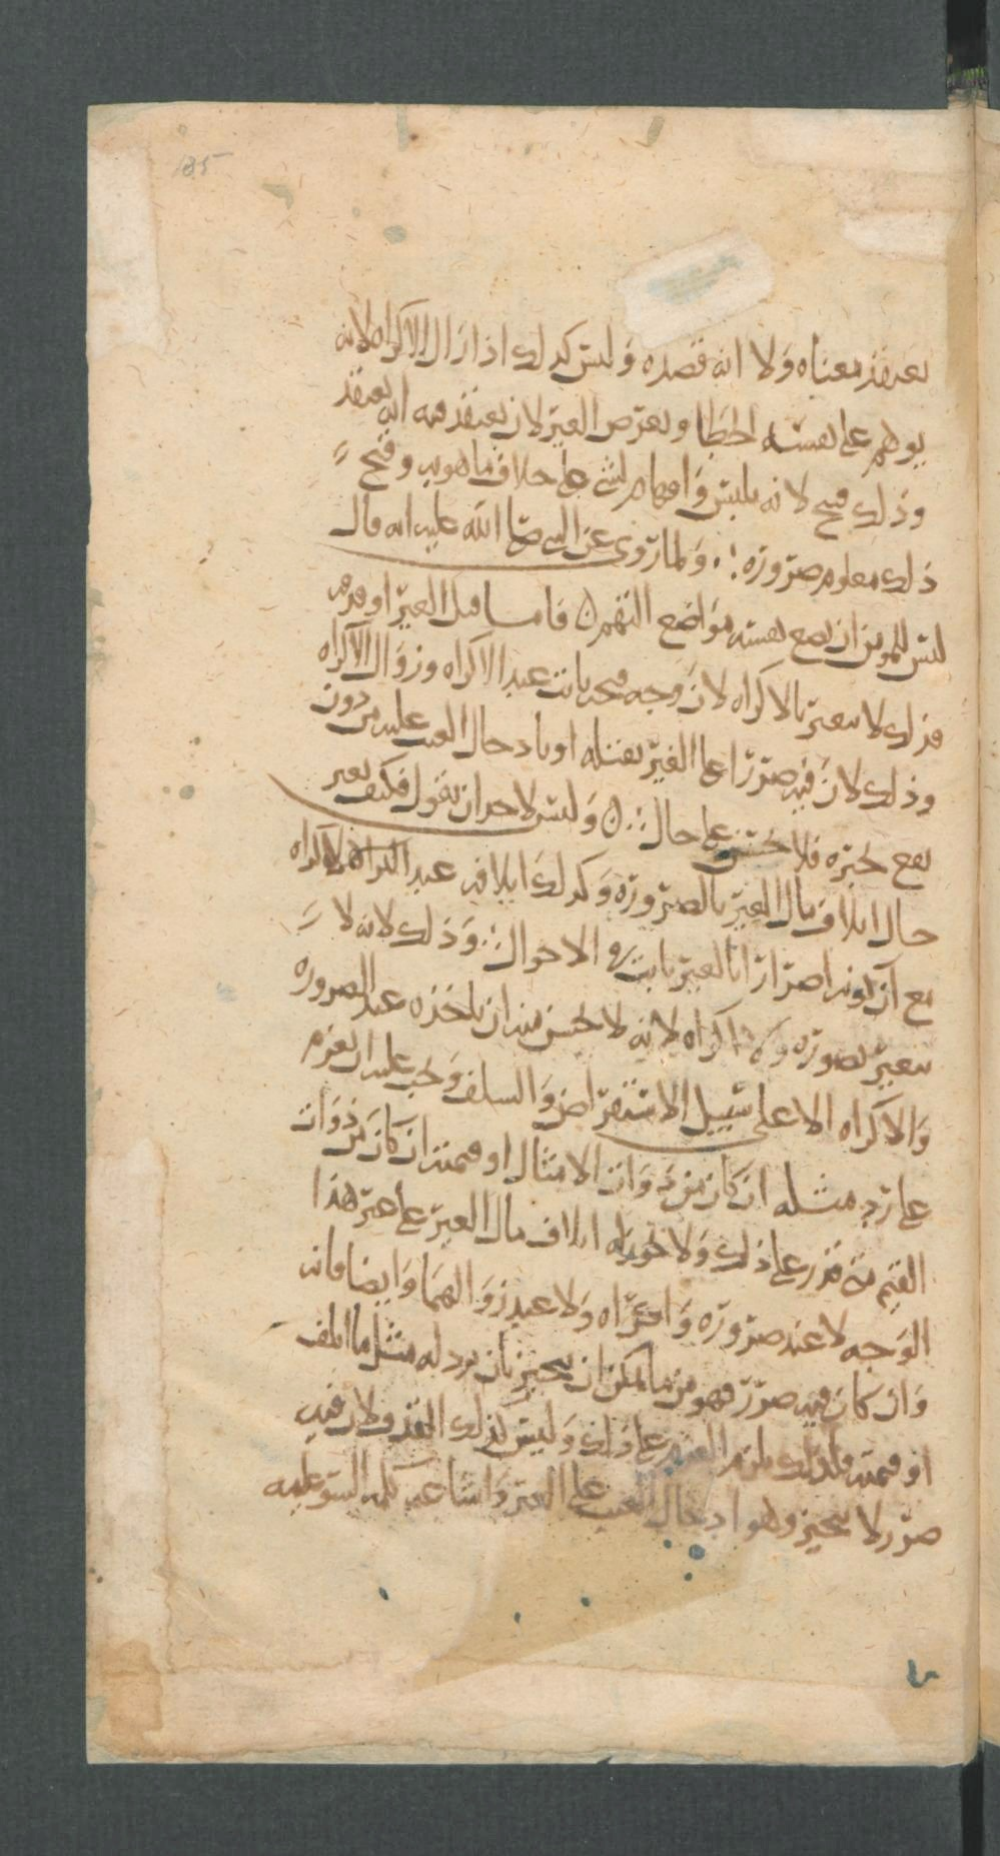 185
يعتقد معناه ولا انه قصده وليس كذلك اذا زال الاكراه لانه
يوهم على نفسه الخطا ويعرض الغير لان يعتقد فيه انه يعتقد
وذلك قبيح لانه تلبيس وايهام لشي على خلاف ما هو به وقبح
ذلك معلوم ضرورة ولما روي عن النبي صلى الله عليه انه قال
ليس للمومن ان يضع نفسه مواضع التهم فاما قتل الغير او قذفه
فذلك لا يتغير بالاكراه لان وجه قبحه ثابت عند الاكراه وزوال الاكراه
وذلك لان فيه ضررا على الغير بقتله او بادخال العيب عليه من دون
نفع لخبره فلا حسن على حال وليس لاحد ان يقول فكيف يغير
حال اتلاف مال الغير بالضرورة وكذلك اتلافه عند الاكراه
مع ان كونه اضرارا بالغير ثابت في الاحوال وذلك لانه لا
يتغير بضرورة ولا اكراه لانه لا يحسن منه ان ياخذه عند الضرورة
والاكراه الا على سبيل الاستقراض والسلف وجب عليه ان يعزم
على رد مثله ان كان من ذوات الامثال او قيمته ان كان من ذوات
القيم متى قدر على ذلك ولا يجوز له اتلاف مال الغير على غير هذا
الوجه لا عند ضرورة واكراه ولا عند زوالهما وايضا فانه
وان كان فيه ضرر فهو مما يمكن ان يجبر بان يرد له مثل ما اتلف
او قيمته فلذلك يلزم على ذلك وليس كذلك القذف لان فيه
ضرر لا يجبر وهو ادخال العيب على الغير